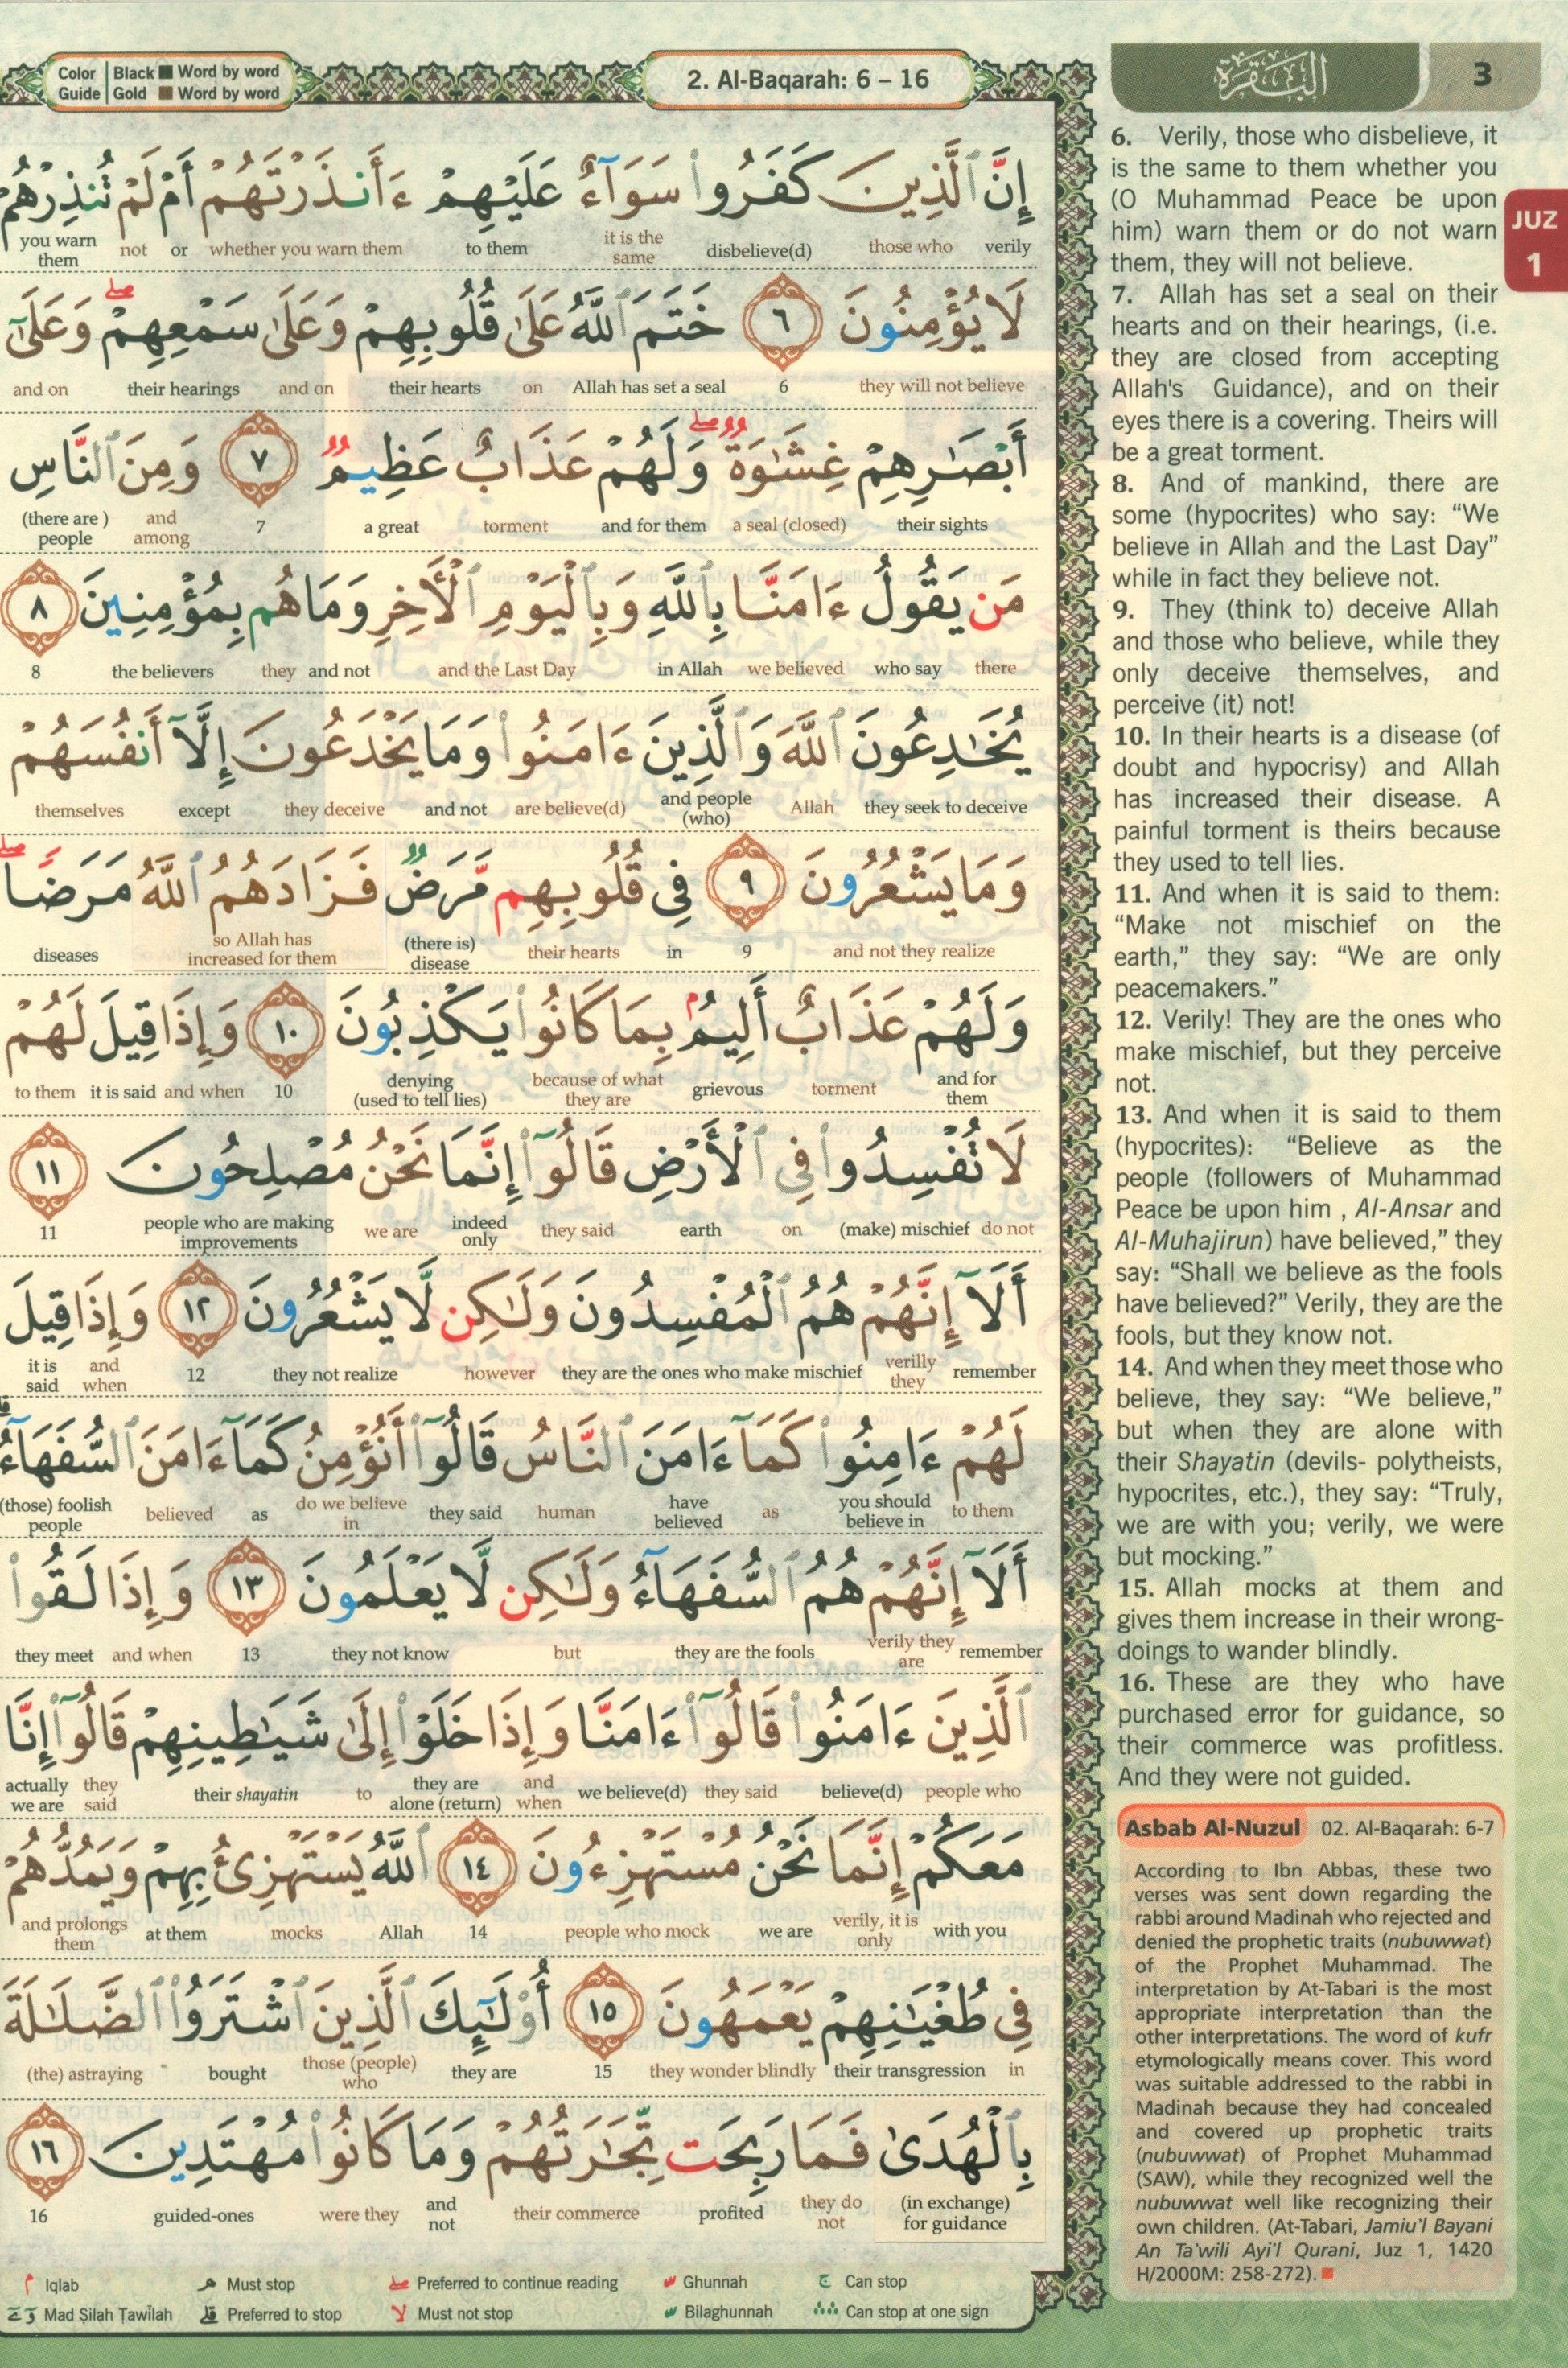 Color Guide | Black ■ Word by word
Gold ■ Word by word
2. Al-Baqarah: 6 – 16
البقرة
3
JUZ
1
إِنَّ ٱلَّذِينَ كَفَرُوا۟ سَوَآءٌ عَلَيْهِمْ ءَأَنذَرْتَهُمْ أَمْ لَمْ تُنذِرْهُمْ
verily those who disbelieve(d) it is the same to them whether you warn them or not you warn them
لَا يُؤْمِنُونَ ٦ خَتَمَ ٱللَّهُ عَلَىٰ قُلُوبِهِمْ وَعَلَىٰ سَمْعِهِمْ ۖ وَعَلَىٰٓ
they will not believe 6 Allah has set a seal on their hearts and on their hearings and on
أَبْصَـٰرِهِمْ غِشَـٰوَةٌ ۖ وَلَهُمْ عَذَابٌ عَظِيمٌ ٧ وَمِنَ ٱلنَّاسِ
their sights a seal (closed) and for them torment a great 7 and among (there are ) people
مَن يَقُولُ ءَامَنَّا بِٱللَّهِ وَبِٱلْيَوْمِ ٱلْأَخِرِ وَمَا هُم بِمُؤْمِنِينَ ٨
there who say we believed in Allah and the Last Day and not they the believers 8
يُخَـٰدِعُونَ ٱللَّهَ وَٱلَّذِينَ ءَامَنُوا۟ وَمَا يَخْدَعُونَ إِلَّآ أَنفُسَهُمْ
they seek to deceive Allah and people (who) are believe(d) and not they deceive except themselves
وَمَا يَشْعُرُونَ ٩ فِى قُلُوبِهِم مَّرَضٌ فَزَادَهُمُ ٱللَّهُ مَرَضًا ۖ
and not they realize 9 in their hearts (there is) disease so Allah has increased for them diseases
وَلَهُمْ عَذَابٌ أَلِيمٌۢ بِمَا كَانُوا۟ يَكْذِبُونَ ١٠ وَإِذَا قِيلَ لَهُمْ
and for them torment grievous because of what they are denying (used to tell lies) 10 and when it is said to them
لَا تُفْسِدُوا۟ فِى ٱلْأَرْضِ قَالُوٓا۟ إِنَّمَا نَحْنُ مُصْلِحُونَ ١١
do not (make) mischief on earth they said indeed only we are people who are making improvements 11
أَلَآ إِنَّهُمْ هُمُ ٱلْمُفْسِدُونَ وَلَـٰكِن لَّا يَشْعُرُونَ ١٢ وَإِذَا قِيلَ
remember verilly they they are the ones who make mischief however they not realize 12 and when it is said
لَهُمْ ءَامِنُوا۟ كَمَآ ءَامَنَ ٱلنَّاسُ قَالُوٓا۟ أَنُؤْمِنُ كَمَآ ءَامَنَ ٱلسُّفَهَآءُ ۗ
to them you should believe in as have believed human they said do we believe in as believed (those) foolish people
أَلَآ إِنَّهُمْ هُمُ ٱلسُّفَهَآءُ وَلَـٰكِن لَّا يَعْلَمُونَ ١٣ وَإِذَا لَقُوا۟
remember verily they are they are the fools but they not know 13 and when they meet
ٱلَّذِينَ ءَامَنُوا۟ قَالُوٓا۟ ءَامَنَّا وَإِذَا خَلَوْا۟ إِلَىٰ شَيَـٰطِينِهِمْ قَالُوٓا۟ إِنَّا
people who believe(d) they said we believe(d) and when they are alone (return) to their shayatin they said actually we are
مَعَكُمْ إِنَّمَا نَحْنُ مُسْتَهْزِءُونَ ١٤ ٱللَّهُ يَسْتَهْزِئُ بِهِمْ وَيَمُدُّهُمْ
with you verily, it is only we are people who mock 14 Allah mocks at them and prolongs them
فِى طُغْيَـٰنِهِمْ يَعْمَهُونَ ١٥ أُو۟لَـٰٓئِكَ ٱلَّذِينَ ٱشْتَرَوُا۟ ٱلضَّلَـٰلَةَ
in their transgression they wonder blindly 15 they are those (people) who bought (the) astraying
بِٱلْهُدَىٰ فَمَا رَبِحَت تِّجَـٰرَتُهُمْ وَمَا كَانُوا۟ مُهْتَدِينَ ١٦
(in exchange) for guidance they do not profited their commerce and not were they guided-ones 16
Iqlab Must stop Preferred to continue reading Ghunnah Can stop
Mad Ṣilah Ṭawīlah Preferred to stop Must not stop Bilaghunnah Can stop at one sign
6. Verily, those who disbelieve, it
is the same to them whether you
(O Muhammad Peace be upon
him) warn them or do not warn
them, they will not believe.
7. Allah has set a seal on their
hearts and on their hearings, (i.e.
they are closed from accepting
Allah's Guidance), and on their
eyes there is a covering. Theirs will
be a great torment.
8. And of mankind, there are
some (hypocrites) who say: “We
believe in Allah and the Last Day”
while in fact they believe not.
9. They (think to) deceive Allah
and those who believe, while they
only deceive themselves, and
perceive (it) not!
10. In their hearts is a disease (of
doubt and hypocrisy) and Allah
has increased their disease. A
painful torment is theirs because
they used to tell lies.
11. And when it is said to them:
“Make not mischief on the
earth,” they say: “We are only
peacemakers.”
12. Verily! They are the ones who
make mischief, but they perceive
not.
13. And when it is said to them
(hypocrites): “Believe as the
people (followers of Muhammad
Peace be upon him , Al-Ansar and
Al-Muhajirun) have believed,” they
say: “Shall we believe as the fools
have believed?” Verily, they are the
fools, but they know not.
14. And when they meet those who
believe, they say: “We believe,”
but when they are alone with
their Shayatin (devils- polytheists,
hypocrites, etc.), they say: “Truly,
we are with you; verily, we were
but mocking.”
15. Allah mocks at them and
gives them increase in their wrong-
doings to wander blindly.
16. These are they who have
purchased error for guidance, so
their commerce was profitless.
And they were not guided.
Asbab Al-Nuzul 02. Al-Baqarah: 6-7
According to Ibn Abbas, these two
verses was sent down regarding the
rabbi around Madinah who rejected and
denied the prophetic traits (nubuwwat)
of the Prophet Muhammad. The
interpretation by At-Tabari is the most
appropriate interpretation than the
other interpretations. The word of kufr
etymologically means cover. This word
was suitable addressed to the rabbi in
Madinah because they had concealed
and covered up prophetic traits
(nubuwwat) of Prophet Muhammad
(SAW), while they recognized well the
nubuwwat well like recognizing their
own children. (At-Tabari, Jamiu'l Bayani
An Ta'wili Ayi'l Qurani, Juz 1, 1420
H/2000M: 258-272).